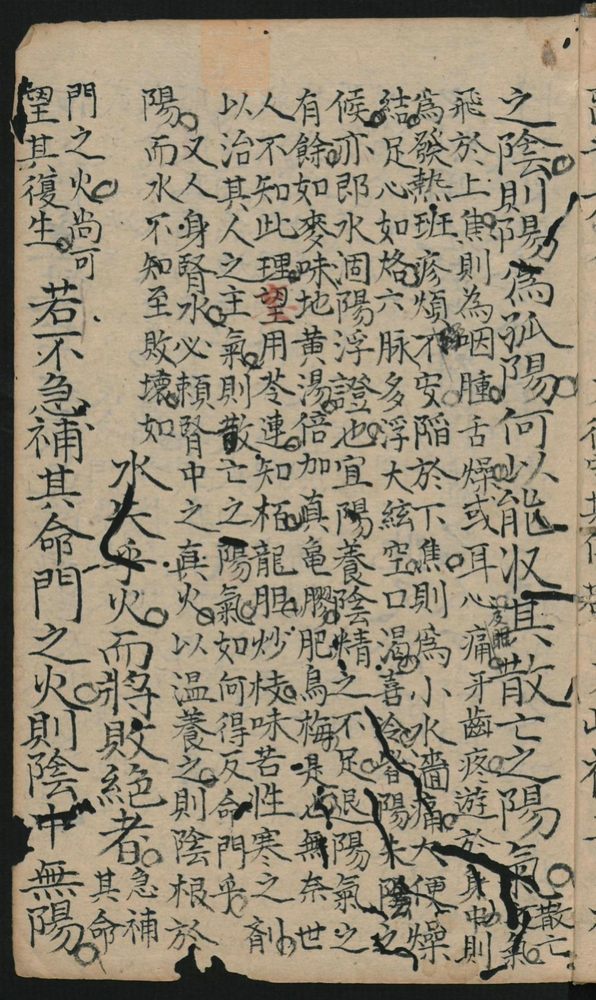 之陰則陽為孤陽何以能收其散亡之陽氣散亡
飛於上焦則為咽腫舌燥或耳心痛牙齒疼遊於身中則
為發熱班疹煩不安陷於下焦則為小水嗇痛大便燥
結足心如烙六脉多浮大絃空口渴喜冷皆陽未陰之
候亦即水涸陽浮證也宜陽養陰精之不足退陽氣之
有餘如麥味地黃湯倍加真龜膠肥烏梅是也無奈世
人不知此理望用苓連知栢龍胆炒枝味苦性寒之劑
以治其人之主氣則散亡之陽氣如何得反命門乎
又人身腎水必賴腎中之真火以温養之則陰根於
陽而水不知至敗壞如
水失乎火而將敗絕者急補
其命
門之火尚可
望其復生
若不急補其命門之火則陰中無陽